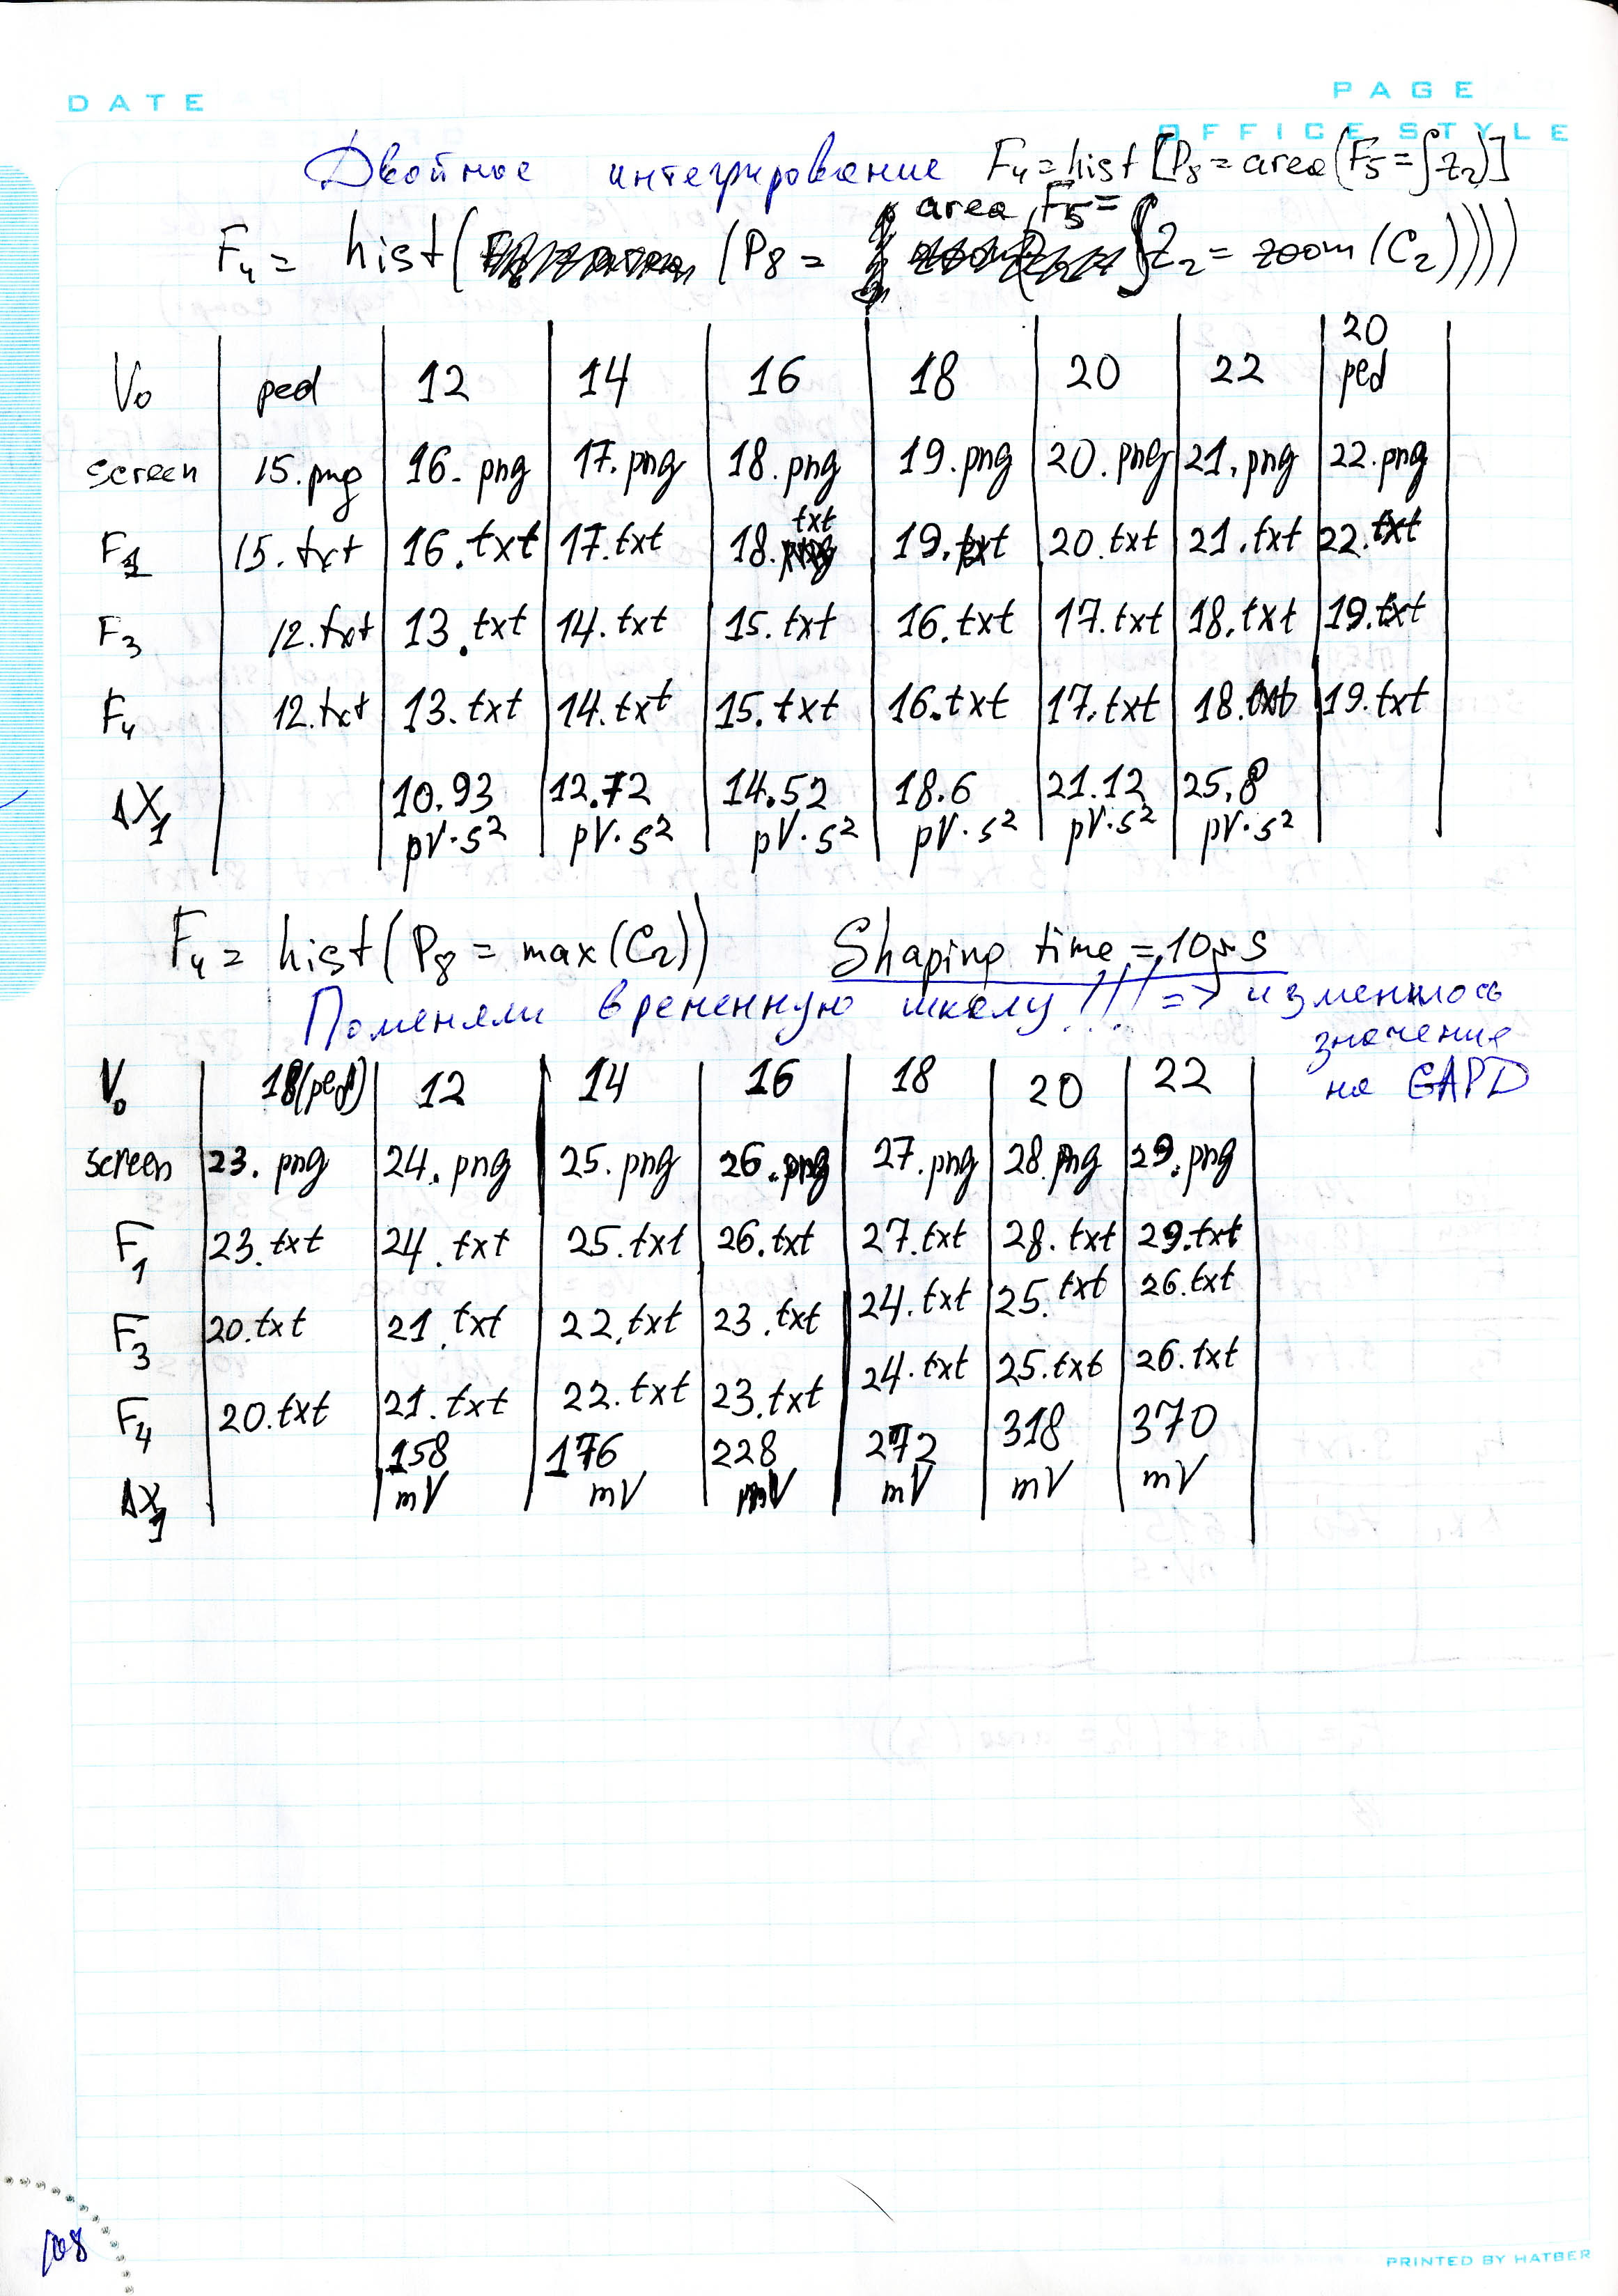 DATE
PAGE
OFFICE STYLE
Двойное интегрирование F₄=hist[P₈=area(F₅=∫Z₂)]
area F₅=
F₄ = hist( (P₈ = ∫Z₂ = zoom (C₂))))
V₀ ped 12 14 16 18 20 22 20 ped
screen 15.png 16.png 17.png 18.png 19.png 20.png 21.png 22.png
F₁ 15.txt 16.txt 17.txt 18.txt 19.txt 20.txt 21.txt 22.txt
F₃ 12.txt 13.txt 14.txt 15.txt 16.txt 17.txt 18.txt 19.txt
F₄ 12.txt 13.txt 14.txt 15.txt 16.txt 17.txt 18.txt 19.txt
ΔX₁ 10.93 12.72 14.52 18.6 21.12 25.8
pV·s² pV·s² pV·s² pV·s² pV·s² pV·s²
F₄ = hist(P₈ = max(C₂)) Shaping time = 10μs
Поменяли временную шкалу!!! => изменилось
значение
на GAPD
V₀ 18(ped) 12 14 16 18 20 22
screen 23.png 24.png 25.png 26.png 27.png 28.png 29.png
F₁ 23.txt 24.txt 25.txt 26.txt 27.txt 28.txt 29.txt
F₃ 20.txt 21.txt 22.txt 23.txt 24.txt 25.txt 26.txt
F₄ 20.txt 21.txt 22.txt 23.txt 24.txt 25.txt 26.txt
ΔX₁ 158 176 228 272 318 370
mV mV mV mV mV mV
108
PRINTED BY HATBER